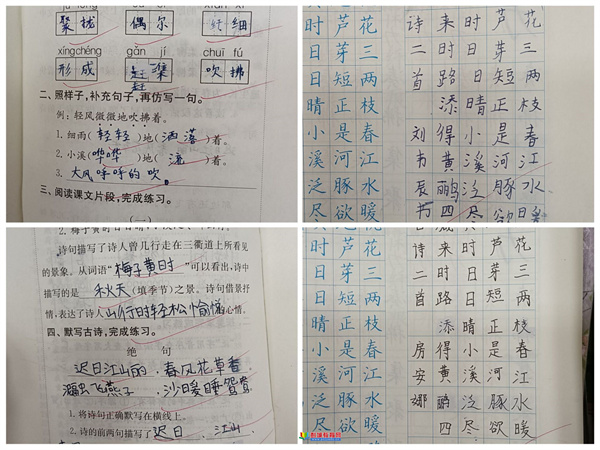 聚拢 偶尔 纤细
xíngchéng gǎn jí chuī fú
形成 赶集 吹拂
赶
二、照样子,补充句子,再仿写一句。
例:轻风微微地吹拂着。
1. 细雨(轻轻)地(洒落)着。
2. 小溪(哗哗)地(流)着。
3. 大风呼呼的吹。
三、阅读课文片段,完成练习。
(一)
花三两枝春江水暖
芦芽短正是河豚欲
时日日晴小溪泛尽
花三两枝春江水暖
芦芽短正是河豚欲
时日日晴小溪泛尽
来时路添得黄鹂四
诗二首 刘书辰书
诗句描写了诗人曾几行走在三衢道上所看见
的景象。从词语“梅子黄时”可以看出,诗中
描写的是 秋天(填季节)之景。诗句借景抒
情,表达了诗人山行时轻松愉悦的心情。
四、默写古诗,完成练习。
绝 句
迟日江山的,春风花草香
飞燕子,沙暖睡鸳鸯
1. 将诗句正确默写在横线上。
2. 诗的前两句描写了 迟日、江山、
花三两枝春江水暖
芦芽短正是河豚欲
时日日晴小溪泛尽
花三两枝春江水暖
芦芽短正是河豚欲
时日日晴小溪泛尽
来时路添得黄鹂四
诗二首 房安娜